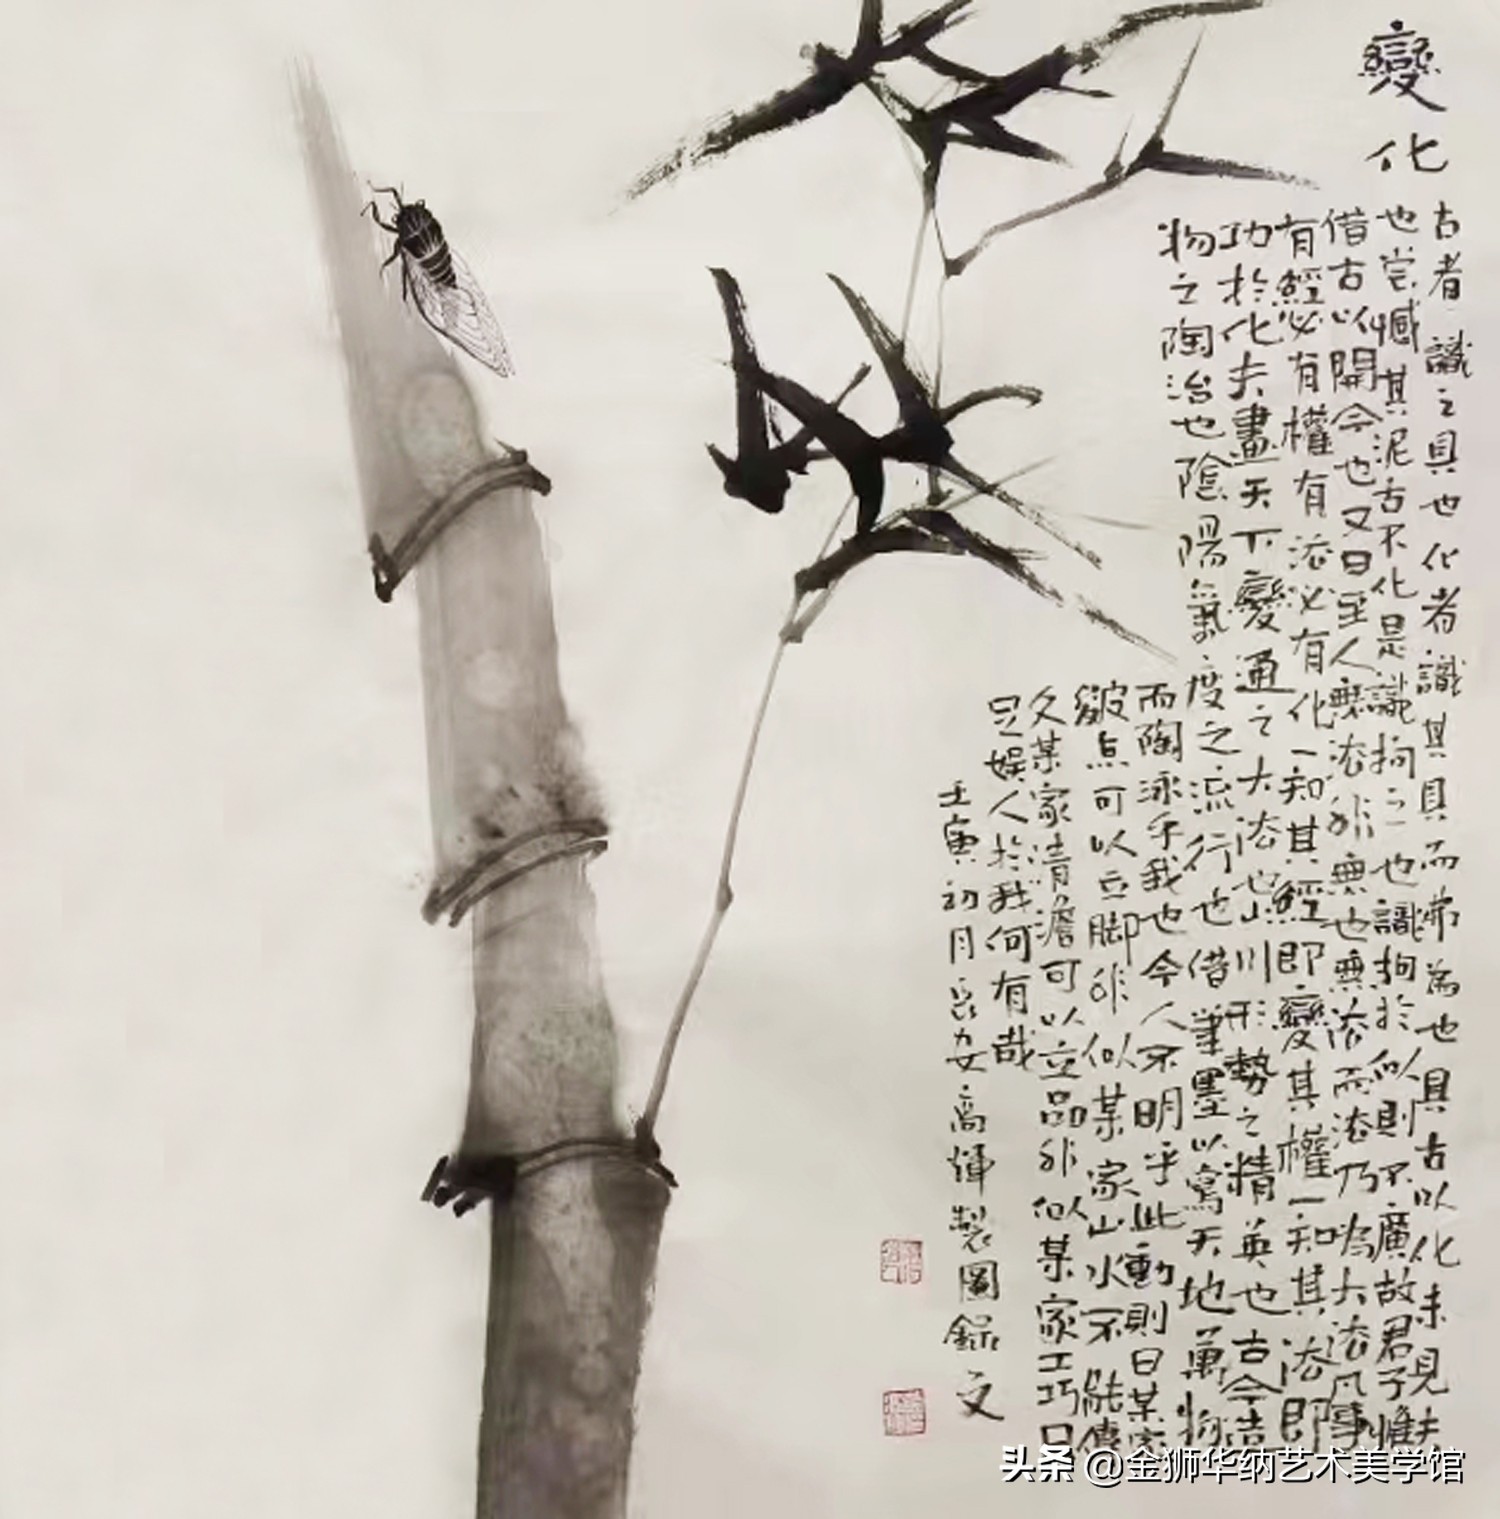 變化
古者識之具也化者識其具而弗為也具古以化未見夫
也嘗憾其泥古不化是識拘之也識拘於似則不廣故君子惟
借古以開今也又曰至人無法非無也無法而法乃為大法凡事
有經必有權有法必有化一知其經即變其權一知其法即
功於化夫畫天下變通之大法也山川形勢之精英也古今造
物之陶冶也陰陽氣度之流行也借筆墨以寫天地萬物
而陶泳乎我也今人不明乎此動則曰某家
皴点可以立脚非似某家山水不能傳
久某家清澹可以立品非似某家工巧只
足娛人於我何有哉
壬寅初月長安高煇製圖錄文
头条 @金狮华纳艺术美学馆